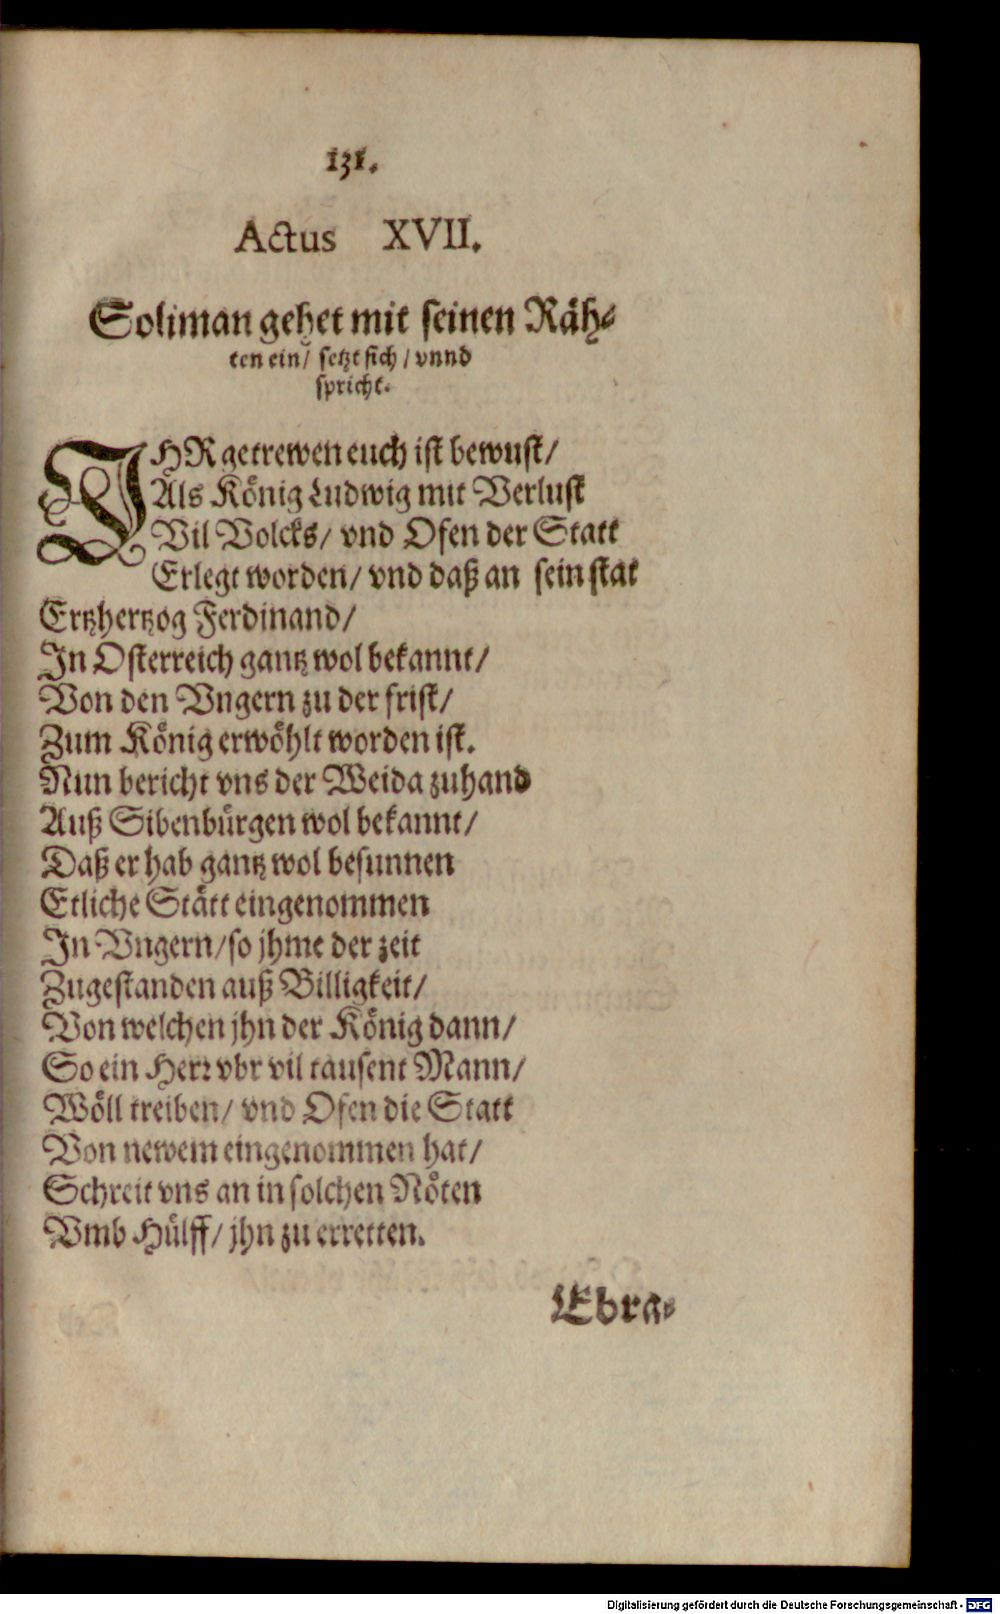 131.
Actus XVII.
Soliman gehet mit seinen Räh-
ten ein/ setzt sich / vnnd
spricht.
IHR getrewen euch ist bewust/
Als König Ludwig mit Verlust
Vil Volcks/ vnd Ofen der Statt
Erlegt worden/ vnd daß an sein stat
Ertzhertzog Ferdinand/
In Osterreich gantz wol bekannt/
Von den Vngern zu der frist/
Zum König erwöhlt worden ist.
Nun bericht vns der Weida zuhand
Auß Sibenbürgen wol bekannt/
Daß er hab gantz wol besunnen
Etliche Stätt eingenommen
In Vngern/ so jhme der zeit
Zugestanden auß Billigkeit/
Von welchen jhn der König dann/
So ein Herr vbr vil tausent Mann/
Wöll treiben/ vnd Ofen die Statt
Von newem eingenommen hat/
Schreit vns an in solchen Nöten
Vmb Hülff/ jhn zu erretten.
Ebra-
Digitalisierung gefördert durch die Deutsche Forschungsgemeinschaft - DFG